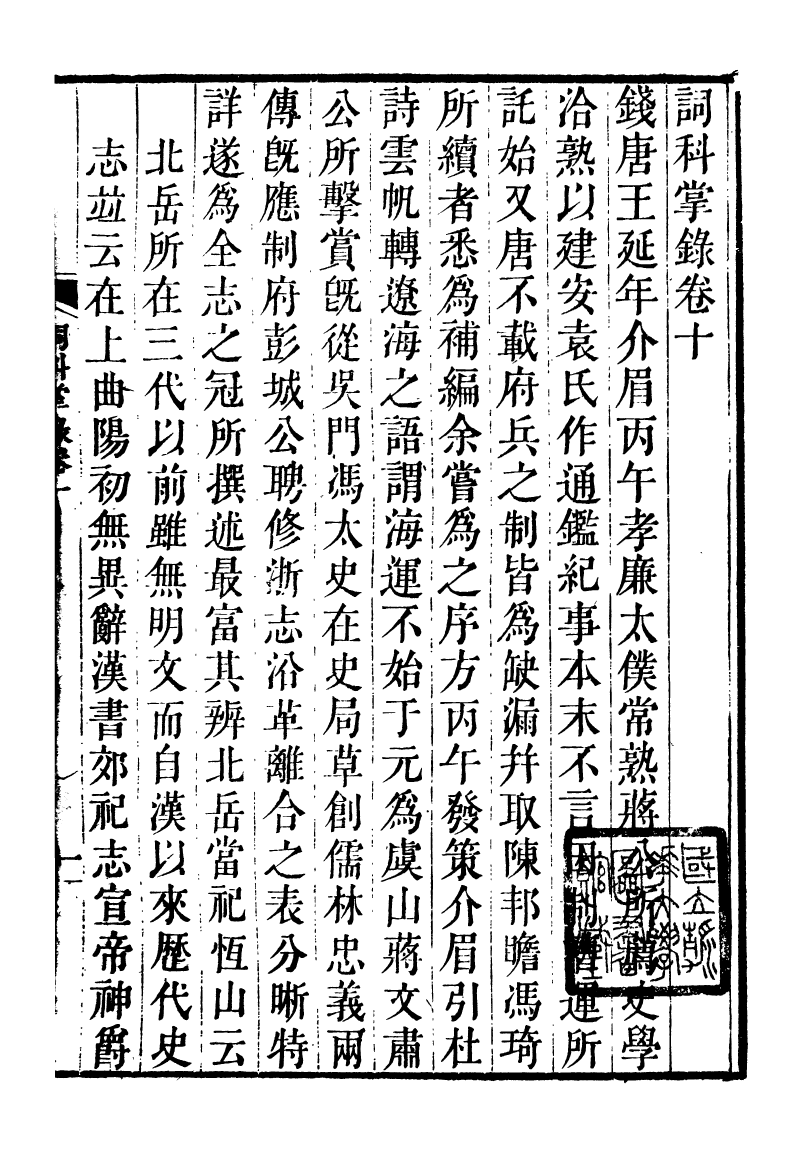 詞科掌錄卷十
錢唐王延年介眉丙午孝廉太僕常熟蔣公所薦史學
洽熟以建安袁氏作通鑑紀事本末不言田制漕運所
託始又唐不載府兵之制皆爲缺漏幷取陳邦瞻馮琦
所續者悉爲補編余嘗爲之序方丙午發策介眉引杜
詩雲帆轉遼海之語謂海運不始于元爲虞山蔣文肅
公所擊賞旣從吳門馮太史在史局草創儒林忠義兩
傳旣應制府彭城公聘修浙志沿革離合之表分晰特
詳遂爲全志之冠所撰述最富其辨北岳當祀恆山云
北岳所在三代以前雖無明文而自漢以來歷代史
志竝云在上曲陽初無異辭漢書郊祀志宣帝神爵
詞科掌錄卷十
一